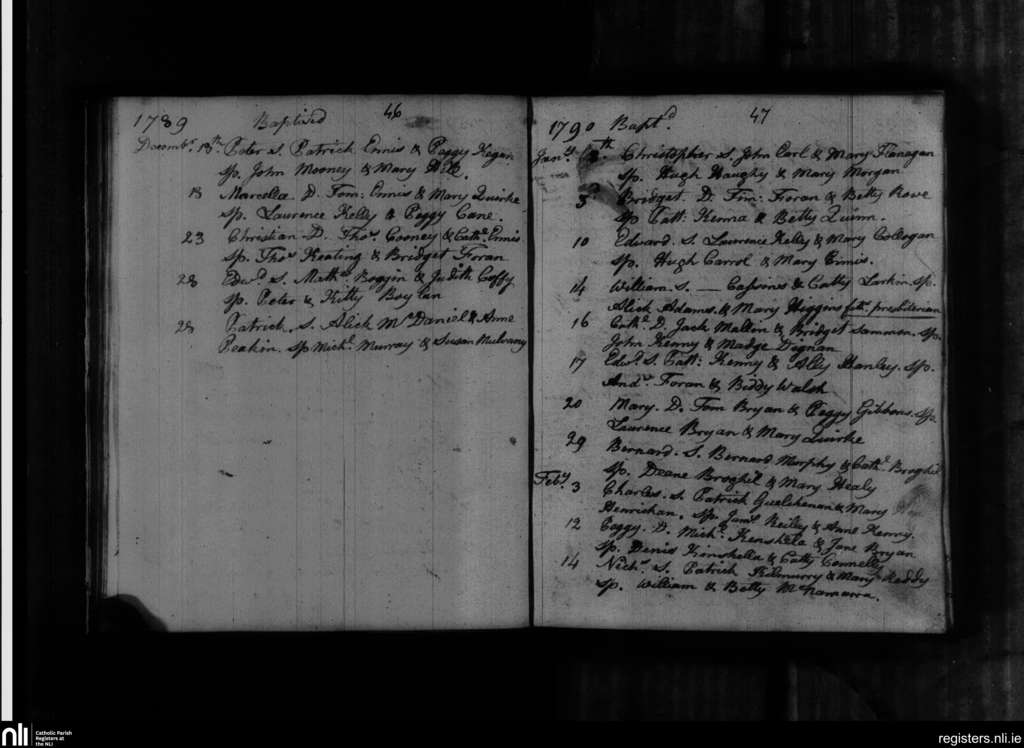 1789 Baptised 46
Decembr. 18th. Peter S. Patrick Ennis & Peggy Kegan
Sp. John Mooney & Mary
18 Marcella D. Tom: Ennis & Mary Quirke
Sp. Laurence Kelly & Peggy Cane.
23 Christian D. Thos. Cooney & Cathe. Ennis
Sp. Thos. Keating & Bridget Foran
28 Edwd. S. Mathw. Boggin & Judith Coffy
Sp. Peter & Kitty Boylan
28 Patrick. S. Alick McDaniel & Anne
Peakin. Sp Michl. Murray & Susan Mulvany
1790 Baptd. 47
Jany. Christopher S. John Carl & Mary Flanagan
Sp. Hugh Haughy & Mary Morgan
3 Bridget. D. Tim: Foran & Betty Rowe
Sp Patt: Kenna & Betty Quinn.
10 Edward. S. Lawrence Kelly & Mary Collogan
Sp. Hugh Carrol & Mary Ennis.
14 William. S. — & Catty Larkin. Sp.
Alick Adams. & Mary Higgins fathr. presbiterian
16 Cathe. D. Jack Mallon & Bridget Sammon. Sp.
John Kenny & Madge Dignan
17 Edwd. S. Patt: Kenny & Ally Hanley. Sp.
Andw. Foran & Biddy Walsh
20 Mary. D. Tom Bryan & Peggy Gibbons. Sp.
Laurence Bryan & Mary Quirke
29 Bernard. S. Bernard Murphy & Cathe. Broghil
Sp. Deane Broghil & Mary Healy
Feby. 3 Charles. S. Patrick & Mary
Henrichan. Sp. Jams. Reiley & Anne Kenny.
12 Peggy. D. Michl. Kenshela & Jane Bryan
Sp. Denis Kinshella & Catty Connelly
14 Nichs. S. Patrick Kilmurry & Mary Reddy
Sp. William & Betty McNamarra.
nli Catholic Parish
Registers at
the NLI
registers.nli.ie